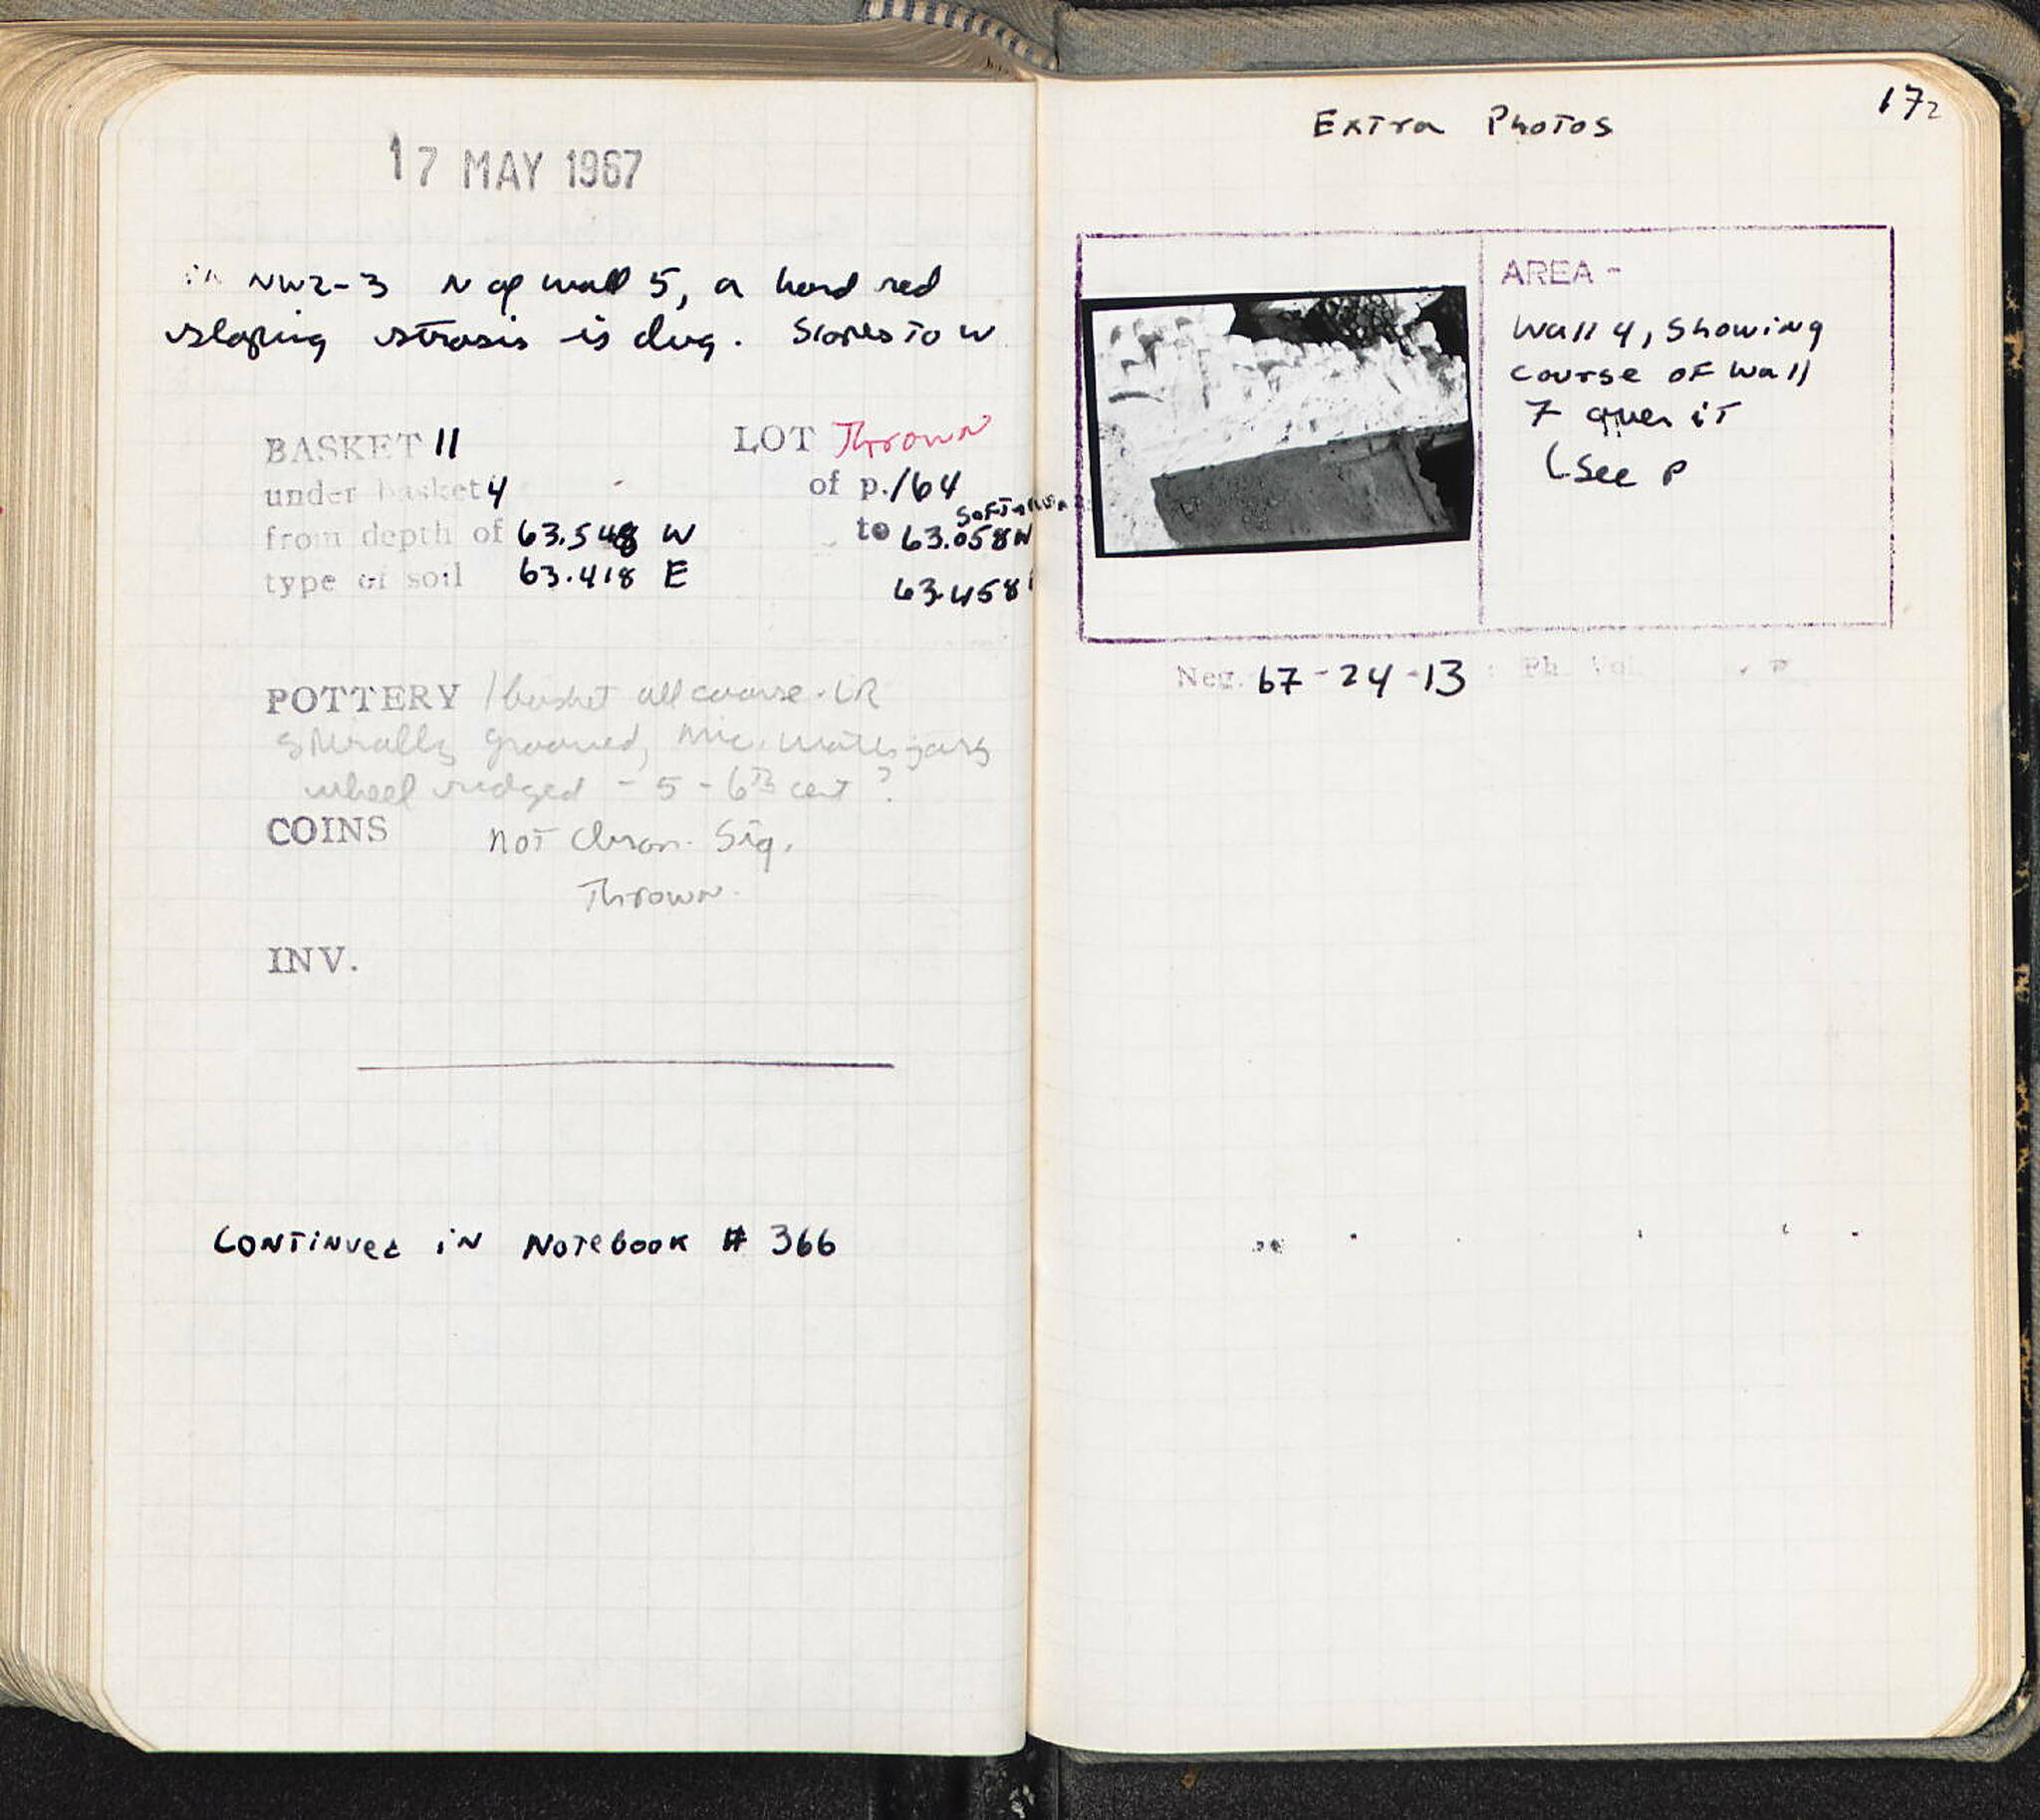 17 MAY 1967
in NW2-3 N of wall 5, a hard red
sloping strosis is dug. Slopes to W
BASKET 11 LOT Thrown
under basket 4 of p. 164
from depth of 63.548 W to 63.058 W
type of soil 63.418 E 63.458
POTTERY 1 basket all coarse. LR
spirally grooved, mic. water jars
wheel ridged - 5 - 6th cent ?
COINS not chron. Sig.
Thrown.
INV.
Continued in Notebook # 366
172
Extra Photos
AREA -
Wall 4, showing
course of wall
7 over it
(See p
Neg. 67-24-13 : Ph. Vol.